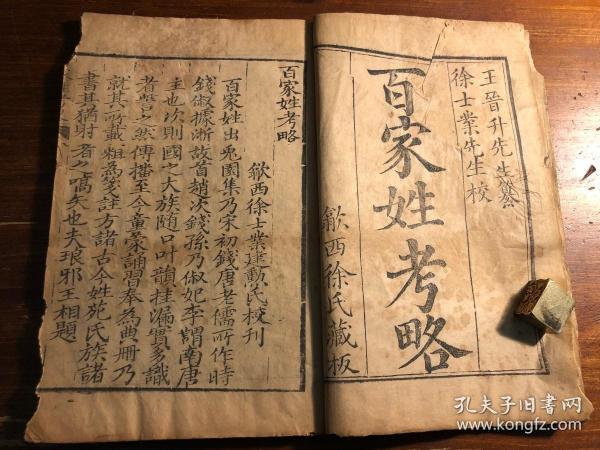 王晉升先生纂
徐士業先生校
百家姓考略
歙西徐氏藏板
百家姓考略
歙西徐士業建勳氏校刊
百家姓出兎園集乃宋初錢唐老儒所作時
錢俶據浙故首趙次錢孫乃俶妃李謂南唐
主也次則國之大族隨口叶韻挂漏實多識
者訾之然傳播至今童蒙誦習奉為典冊乃
就其所載粗為箋註方諸古今姓苑氏族諸
書其猶射者之嚆矢也夫琅邪王相題
孔夫子旧书网
www.kongfz.com